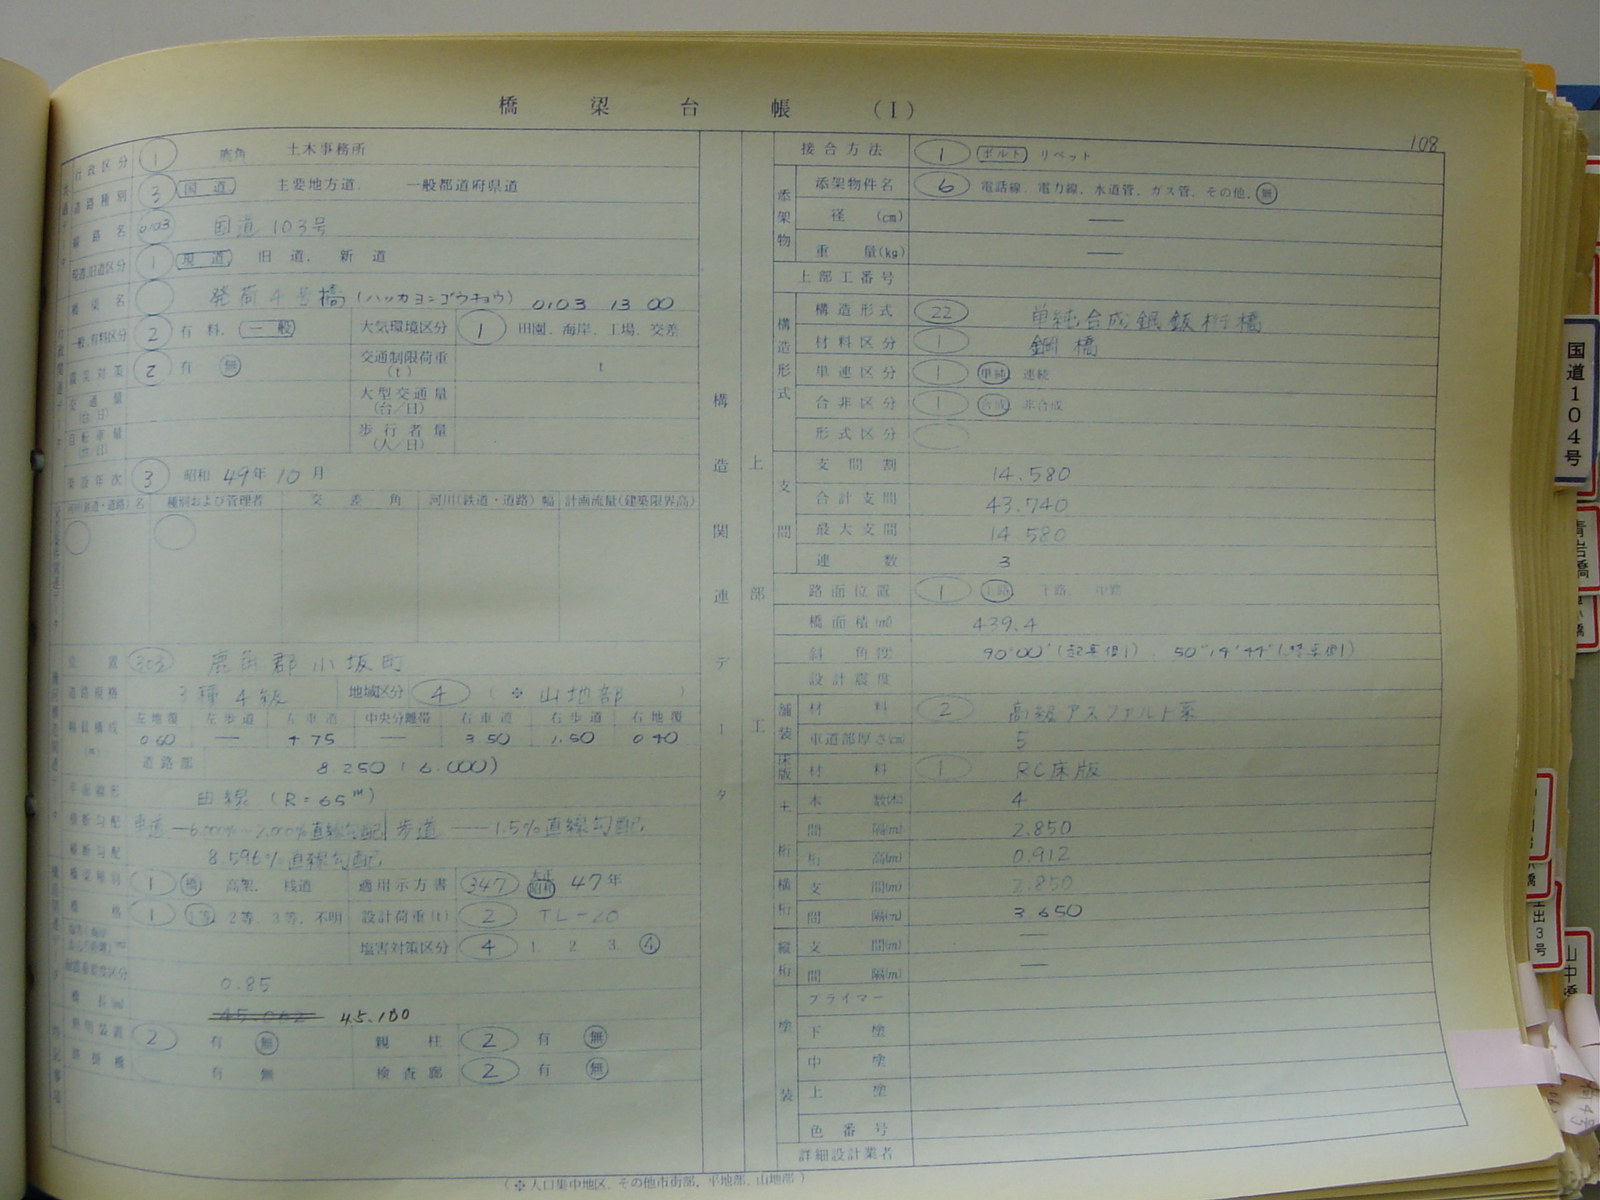 橋 梁 台 帳 （I）
108
行政区分 1 鹿角 土木事務所
道路種別 3 国道 主要地方道. 一般都道府県道
路線名 0103 国道103号
現道旧道区分 1 現道 旧道. 新道
橋梁名 発荷4号橋(ハッカヨンゴウキョウ) 0103 13 00
一般,有料区分 2 有料. 一般 大気環境区分 1 田園. 海岸. 工場. 交差
震災対策 2 有 無 交通制限荷重(t) t
交通量(台/日) 大型交通量(台/日)
自転車量(台/日) 歩行者量(人/日)
架設年次 3 昭和 49年 10月
河川(鉄道・道路)名 種別および管理者 交差角 河川(鉄道・道路)幅 計画流量(建築限界高)
位置 303 鹿角郡小坂町
道路規格 3種4級 地域区分 4 (※ 山地部 )
幅員構成(m) 左地覆 左歩道 左車道 中央分離帯 右車道 右歩道 右地覆
0.60 — 4.75 — 3.50 1.50 0.40
道路部 8.250(6.000)
平面線形 曲線 (R=65m)
直線勾配 歩道 — 1.5%直線勾配
8.596%直線勾配
橋梁種別 1 橋 高架. 桟道 適用示方書 347 大正 昭和 47年
等格 1 1等 2等. 3等. 不明 設計荷重(t) 2 TL-20
塩害対策区分 4 1. 2 3. 4
0.85
橋長(m) 45.100
照明装置 2 有 無 親柱 2 有 無
有 無 検査廊 2 有 無
(※人口集中地区. その他市街部. 平地部. 山地部)
構造関連データ
上部工
接合方法 1 ボルト リベット
添架物
添架物件名 6 電話線. 電力線. 水道管. ガス管. その他. 無
径 (cm) —
重量(kg) —
上部工番号
構造形式
構造形式 22 単純合成鋼鈑桁橋
材料区分 1 鋼橋
単連区分 1 単純 連続
合非区分 1 合成 非合成
形式区分
支間
支間割 14.580
合計支間 43.740
最大支間 14.580
連数 3
路面位置 1 上路 下路 中路
橋面積(㎡) 439.4
斜角(度) 90°00'(起点側). 50°14'44"(終点側)
設計震度
舗装 材料 2 高級アスファルト系
車道部厚さ(cm) 5
床版 材料 1 RC床版
主桁 本数(本) 4
間隔(m) 2.850
桁高(m) 0.912
横桁 支間(m) 2.850
間隔(m) 3.650
縦桁 支間(m) —
間隔(m) —
塗装
プライマー
下塗
中塗
上塗
色番号
詳細設計業者
国道104号
青岩橋
山中橋